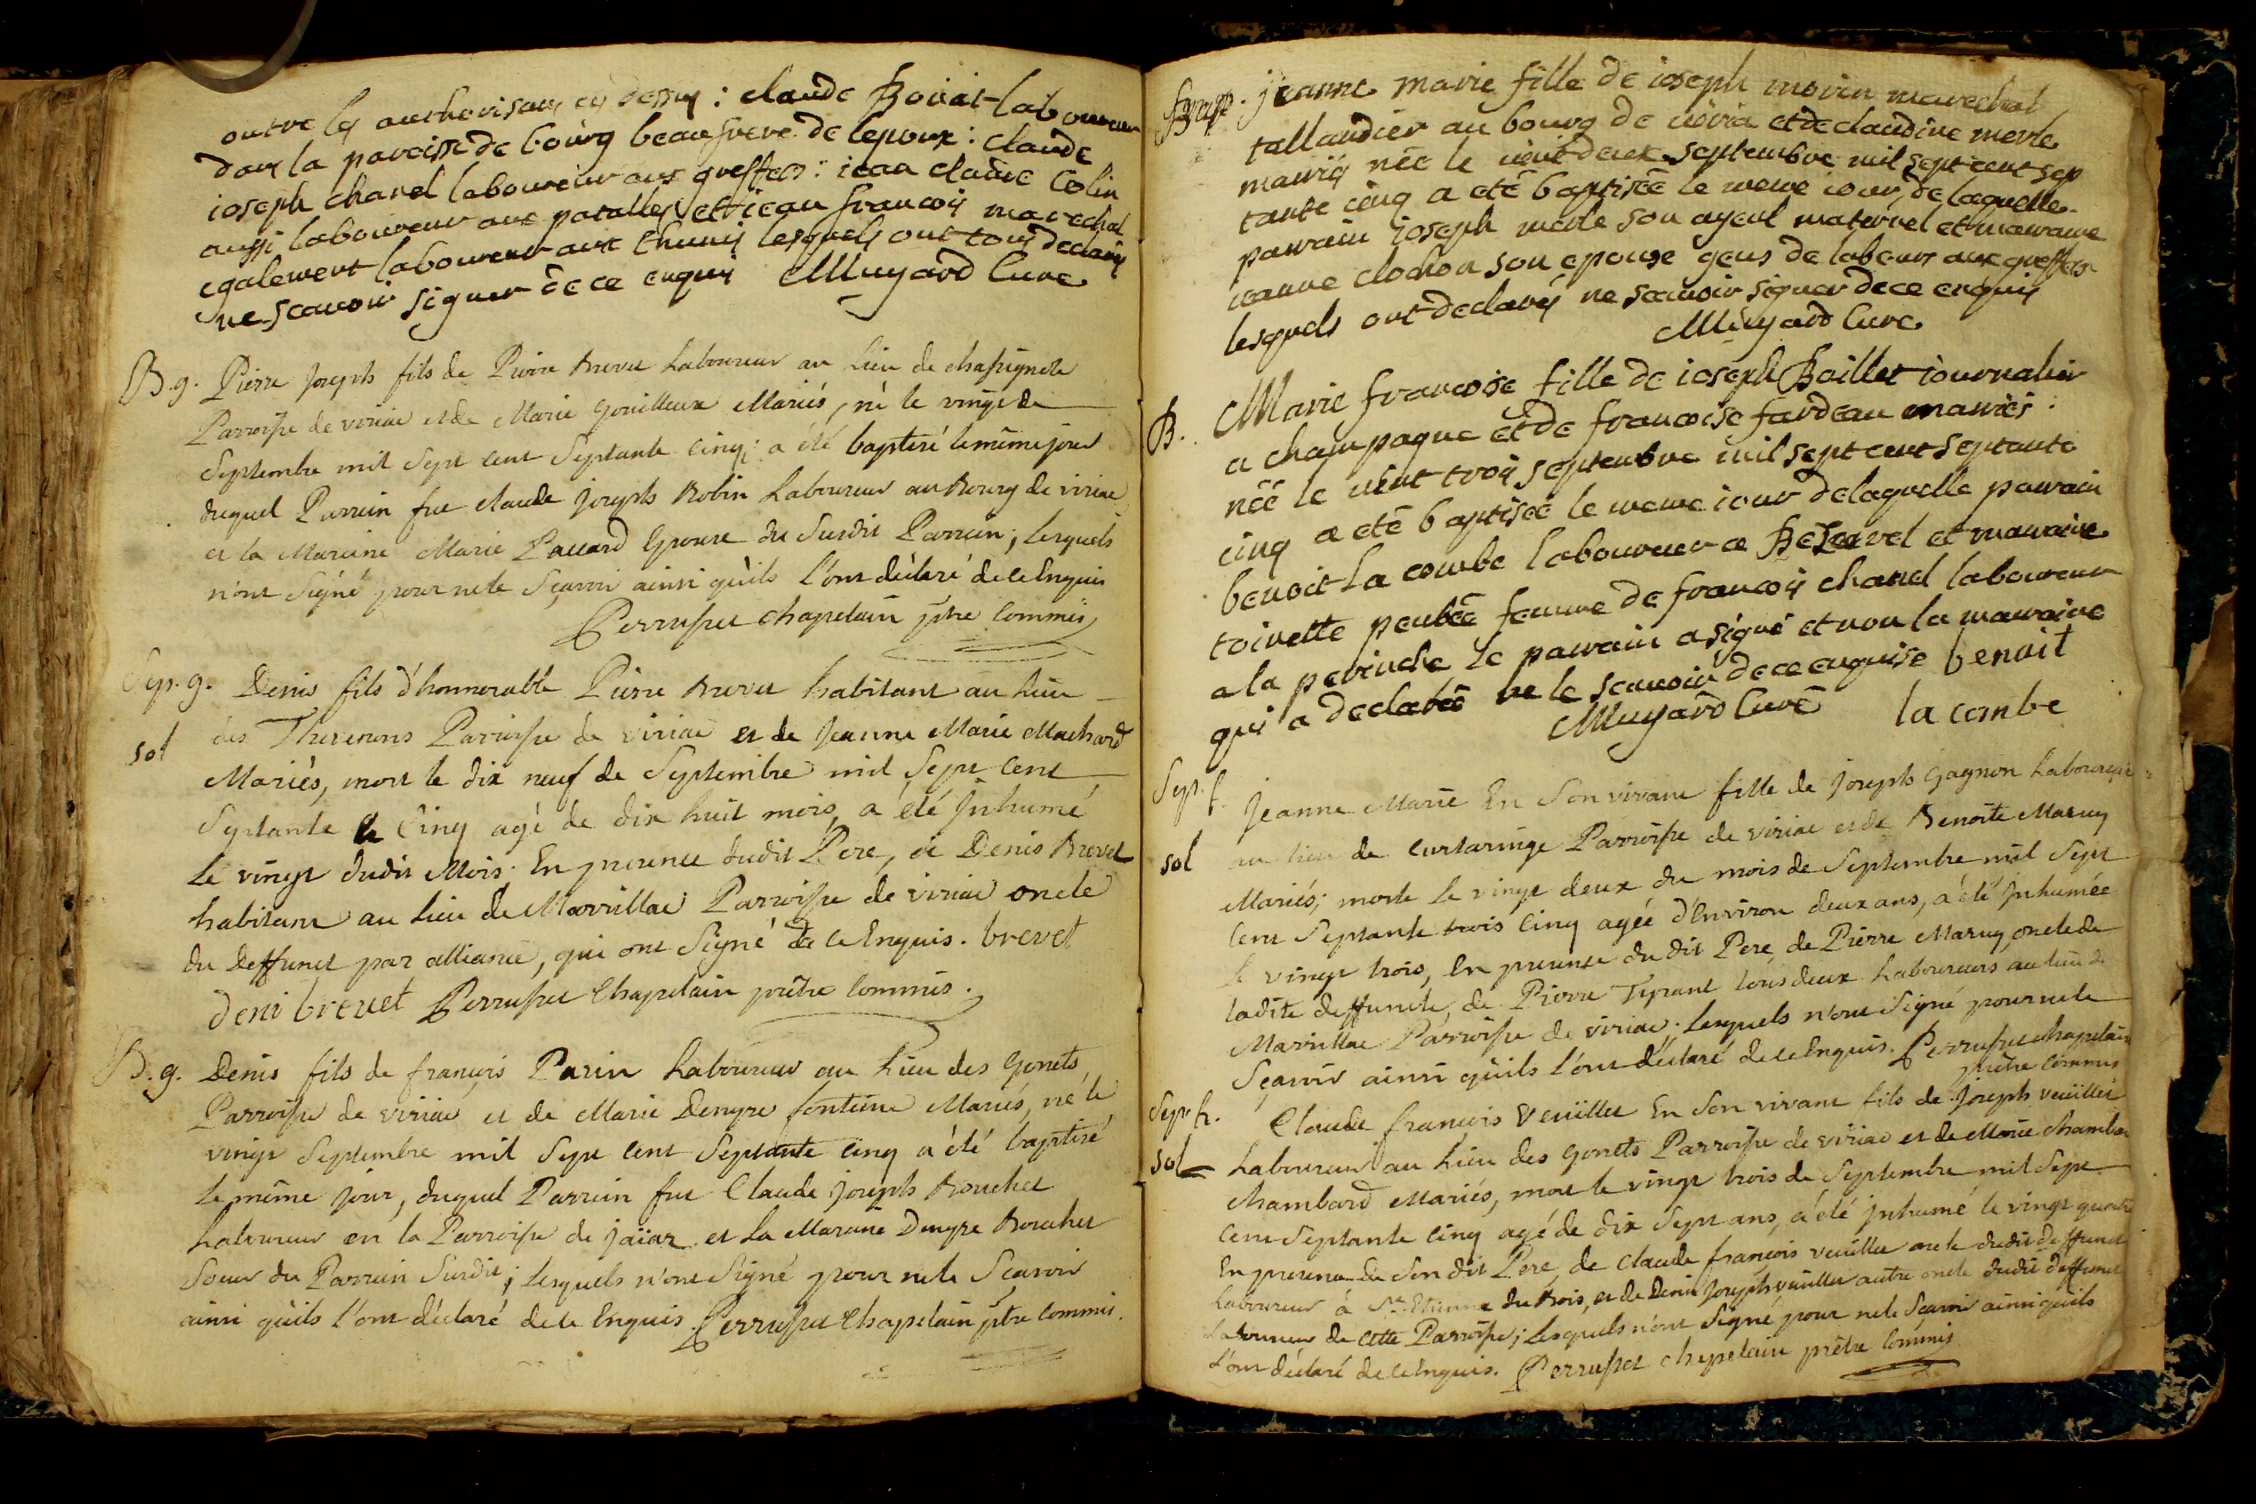 outre les authorisans cy dessus : claude Boüat laboureur
dans la paroisse de bourg beaufrere de lepoux : claude
ioseph chanel laboureur aux greffets : iean claude Colin
aussi laboureur aux patalles et iean francois marechal
egalement laboureur aux thunis lesquels ont tous declarés
ne scavoir signer de ce enquis MMuyard Curé
B. g. Pierre Joseph fils de Pierre Brevet Laboureur au Lieu de chasignole
Parroisse de viriac et de Marie Gouilleux Mariés, né le vingt de
Septembre mil Sept cent Septante Cinq; a été baptisé le même jour
duquel Parrein fut claude joseph Robin Laboureur au Bourg de viriac
et la Mareine Marie Pauard Epouse du Susdit Parrein; Lesquels
n'ont Signé pour ne le Sçavoir ainsi qu'ils l'ont déclaré de ce Enquis
Perrusset chapelain ptre Commis
Sep. g. Denis fils d'honnorable Pierre Brevet habitant au Lieu
sol des Therenens Parroisse de viriac et de Jeanne Marie Machard
Mariés, mort le dix neuf de Septembre mil Sept Cent
Septante Cinq agé de dix huit mois, a été Inhumé
Le vingt dudit Mois. En presence dudit Pere, de Denis Brevet
habitant au Lieu de Marvillac Parroisse de viriac oncle
du Deffunct par alliance, qui ont Signé de ce Enquis. brevet
deni brevet Perrusset Chapelain prêtre Commis.
B. g. Denis fils de françois Parin Laboureur au Lieu des Gonets,
Parroisse de viriac et de Marie Denyse fonteine Mariés, né le
vingt Septembre mil Sept cent Septante cinq a été baptisé
le même jour, duquel Parrein fut Claude joseph Bouchet
Laboureur en la Parroisse de jaïaz et La Mareine Denyse Bouchet
Soeur du Parrein Susdit; Lesquels n'ont Signé pour ne le Scavoir
ainsi qu'ils l'ont déclaré de ce Enquis. Perrusset Chapelain ptre Commis.
jeanne marie fille de ioseph morin marechal
tallandier au bourg de viria et de claudine merle
mariés née le vint deux septembre mil sept cent sep
tante cinq a eté baptisée le meme iour, de laquelle
parrain ioseph merle son ayeul maternel et marraine
ieanne clochon son epouse gens de labeur aux greffets
lesquels ont declarés ne scavoir signer de ce enquis
MMuyard Curé
B. Marie francoise fille de ioseph Baillet iournalier
a champagne et de francoise fardeau mariés :
née le vint trois septembre mil sept cent septante
cinq a eté baptisée le meme iour de laquelle parrain
benoit La combe laboureur a Beserel et marraine
toinette penbée femme de francois chanel laboureur
a la perinche le parrain a signé et non la marraine
qui a declarée ne le scavoir de ce enquise benoit
MMuyard Curé la combe
Sep. f. Jeanne Marie En Son vivant fille de joseph Gagnon Laboureur
sol au Lieu de Curtaringe Parroisse de viriac et de Benoite Maruy
Mariés; morte Le vingt deux du mois de Septembre mil Sept
Cent Septante trois Cinq agée d'Environ deux ans, a été Inhumée
le vingt trois, En presence du dit Pere, de Pierre Maruy oncle de
ladite deffuncte, de Pierre Tyrant tous deux Laboureurs au lieu de
Marvillac Parroisse de viriac. Lesquels n'ont Signé pour ne le
Sçavoir ainsi qu'ils l'ont déclaré de ce Enquis. Perrusset chapelain
prêtre Commis
Sep. h. Claude françois Veüillet En Son vivant fils de Joseph veüillet
sol Laboureur au Lieu des Gonets Parroisse de viriac et de Marie Chambar
Chambard Mariés, mort le vingt trois de Septembre mil Sept
Cent Septante Cinq agé de dix Sept ans, a été Inhumé le vingt quatre
En presence de Son dit Pere, de Claude françois veüillet oncle dudit Deffunct
Laboureur à St. Etienne du Bois, et de Denis Joseph veüillet autre oncle dudit Deffunct
Laboureur de Cette Parroisse; Lesquels n'ont Signé pour ne le Sçavoir ainsi qu'ils
l'ont déclaré de ce Enquis. Perrusset chapelain prêtre Commis